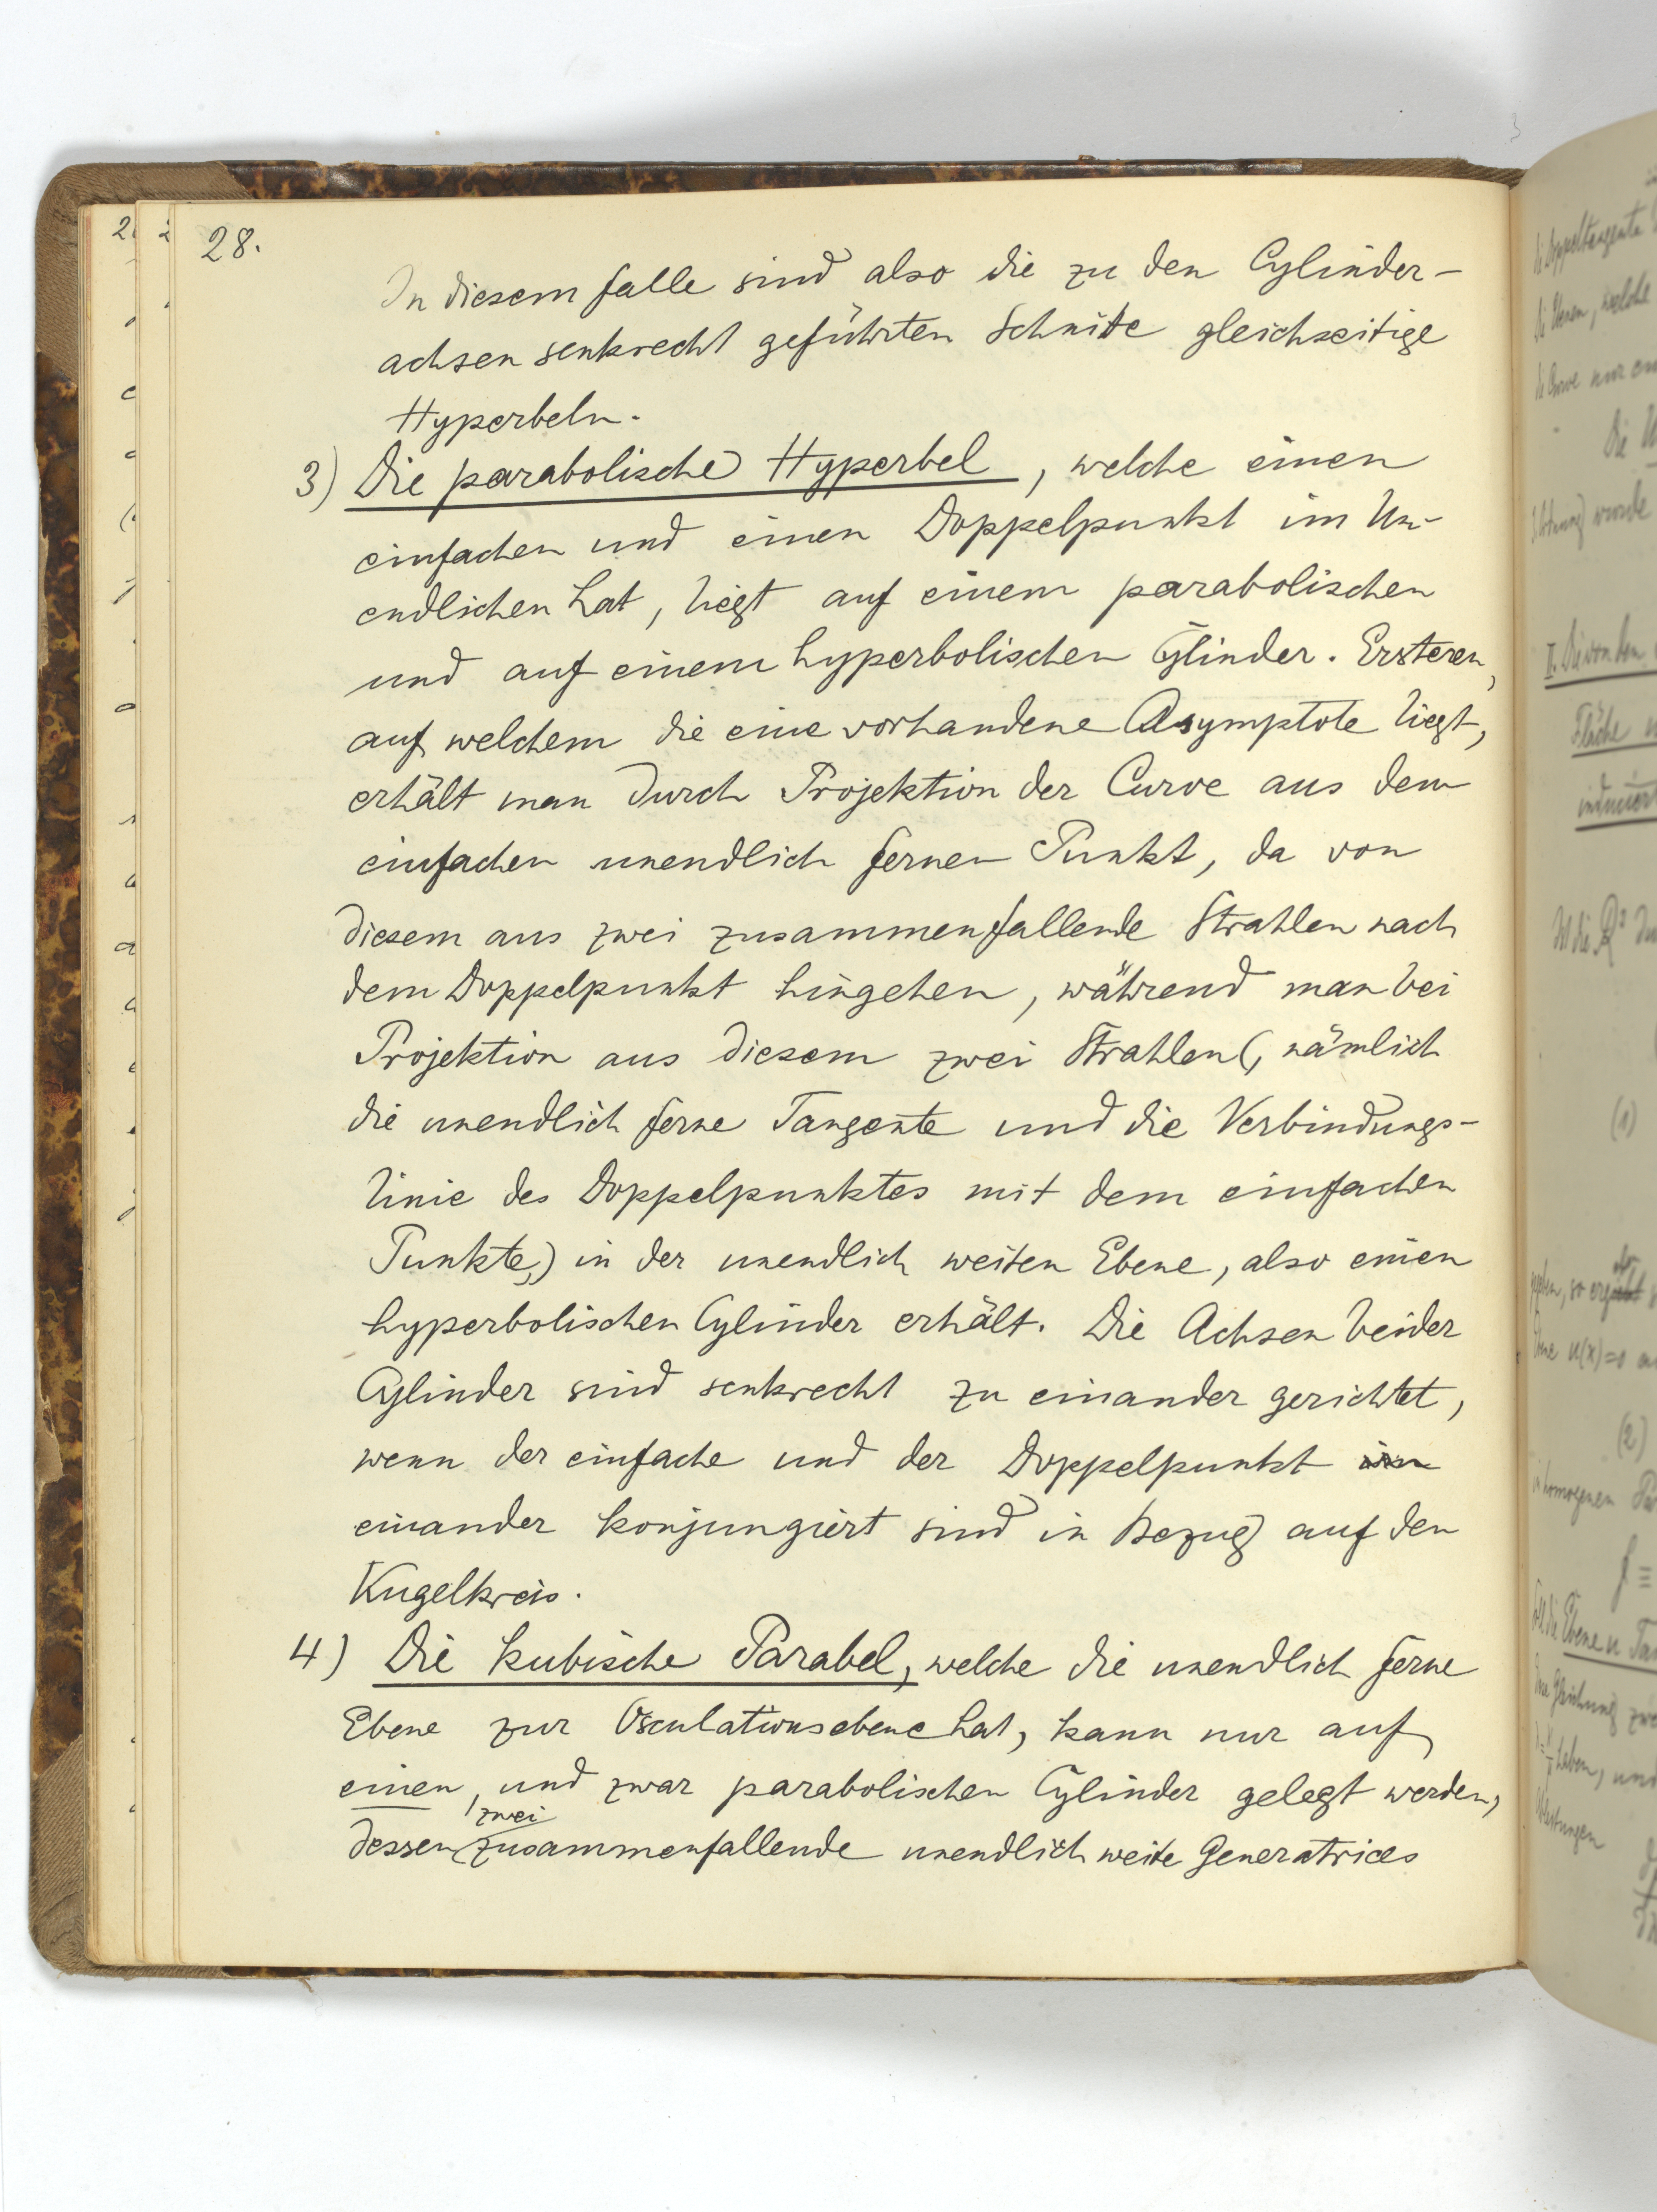 28.
In diesem Falle sind also die zu den Cylinder-
achsen senkrecht geführten Schnitte gleichseitige
Hyperbeln.
3) Die parabolische Hyperbel, welche einen
einfachen und einen Doppelpunkt im Un-
endlichen hat, liegt auf einem parabolischen
und auf einem hyperbolischen Cylinder. Ersteren,
auf welchem die eine vorhandene Asymptote liegt,
erhält man durch Projektion der Curve aus dem
einfachen unendlich fernen Punkt, da von
diesem aus zwei zusammenfallende Strahlen nach
dem Doppelpunkt hingehen, während man bei
Projektion aus diesem zwei Strahlen (, nämlich
die unendlich ferne Tangente und die Verbindungs-
linie des Doppelpunktes mit dem einfachen
Punkte,) in der unendlich weiten Ebene, also einen
hyperbolischen Cylinder erhält. Die Achsen beider
Cylinder sind senkrecht zu einander gerichtet,
wenn der einfache und der Doppelpunkt
einander konjungiert sind in Bezug auf den
Kugelkreis.
4) Die kubische Parabel, welche die unendlich ferne
Ebene zur Osculationsebene hat, kann nur auf
einen, und zwar parabolischen Cylinder gelegt werden,
zwei
dessen zusammenfallende unendlich weite Generatrices
(1)
(2)